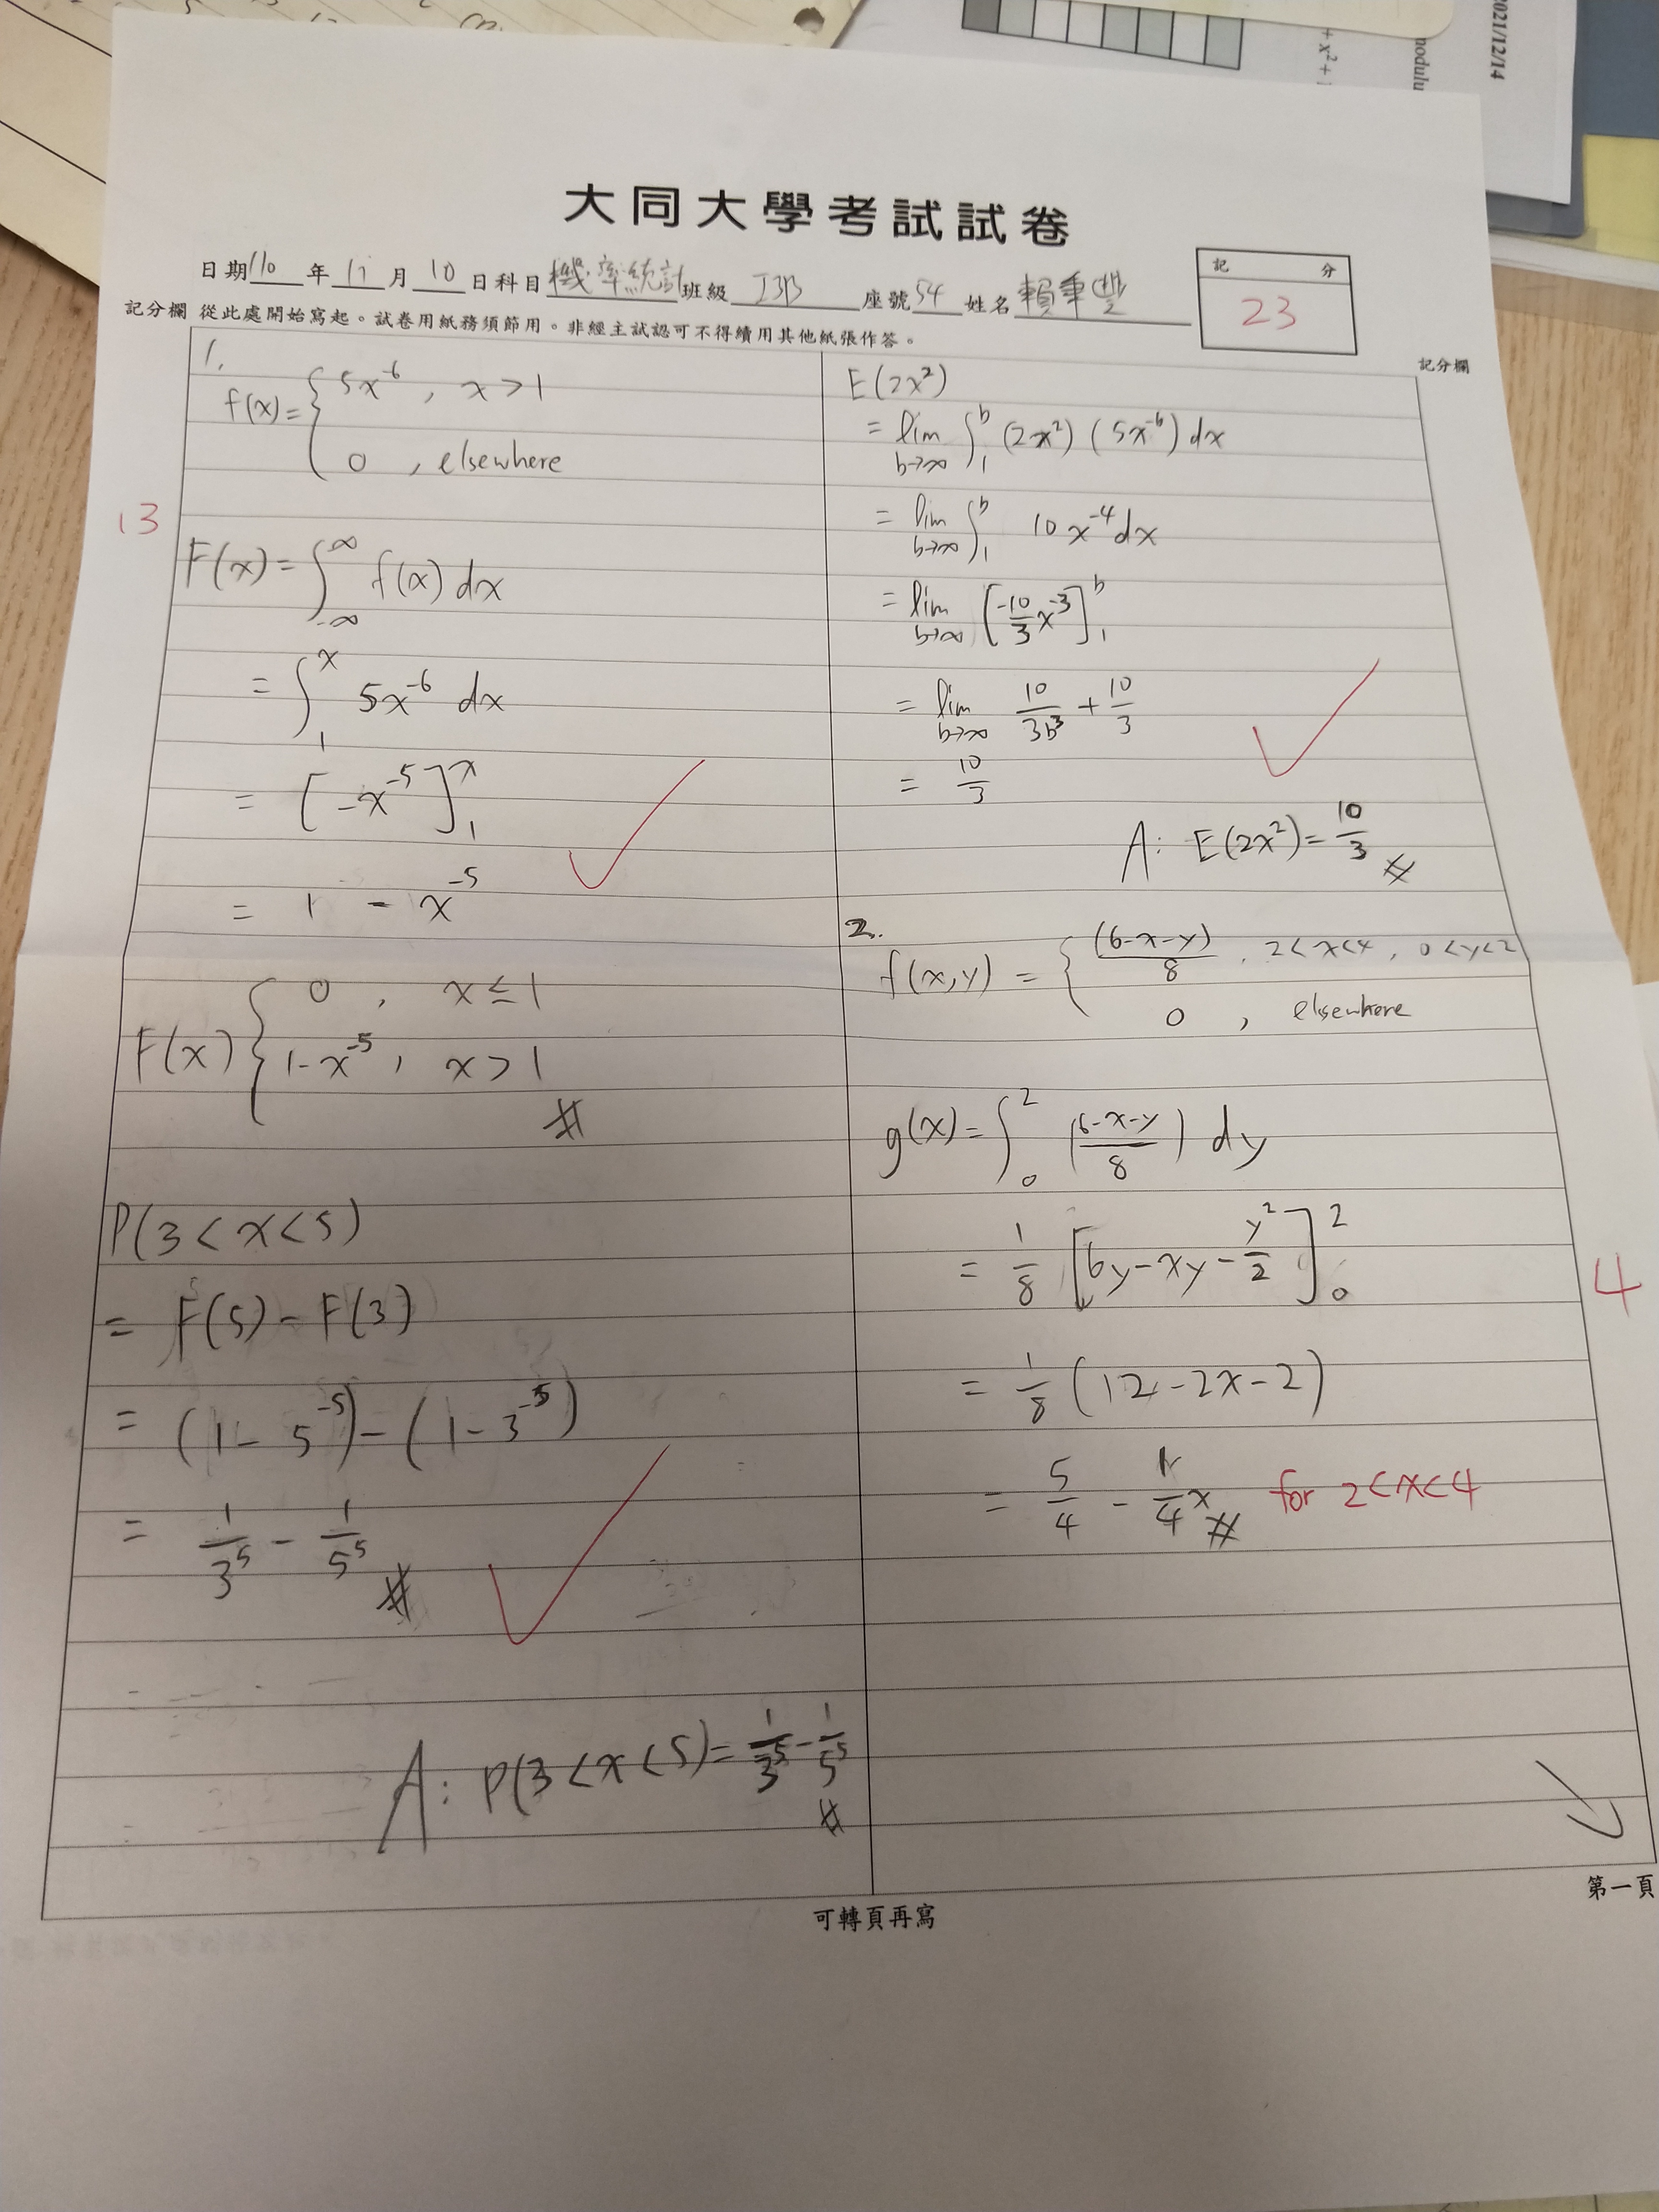 2021/12/14
modulu
+ x² +
大同大學考試試卷
日期 110 年 11 月 10 日 科目 機率統計 班級 I3B 座號 54 姓名 賴秉豐
記 分
23
記分欄 從此處開始寫起。試卷用紙務須節用。非經主試認可不得續用其他紙張作答。
記分欄
1.
f(x) = { 5x⁻⁶ , x > 1
0 , elsewhere
13
F(x) = ∫_{-∞}^{∞} f(x) dx
= ∫_1^x 5x⁻⁶ dx
= [-x⁻⁵]_1^x
= 1 - x⁻⁵
F(x) { 0 , x ≤ 1
1-x⁻⁵ , x > 1 #
P(3 < x < 5)
= F(5) - F(3)
= (1 - 5⁻⁵) - (1 - 3⁻⁵)
= 1/3⁵ - 1/5⁵ #
A: P(3 < x < 5) = 1/3⁵ - 1/5⁵ #
E(2x²)
= lim_{b→∞} ∫_1^b (2x²)(5x⁻⁶) dx
= lim_{b→∞} ∫_1^b 10x⁻⁴ dx
= lim_{b→∞} [-10/3 x⁻³]_1^b
= lim_{b→∞} 10/3b³ + 10/3
= 10/3
A: E(2x²) = 10/3 #
2.
f(x,y) = { (6-x-y)/8 , 2<x<4 , 0<y<2
0 , elsewhere
g(x) = ∫_0^2 (6-x-y/8) dy
= 1/8 [6y - xy - y²/2]_0^2
4
= 1/8 (12 - 2x - 2)
= 5/4 - 1/4 x # for 2<x<4
第一頁
可轉頁再寫